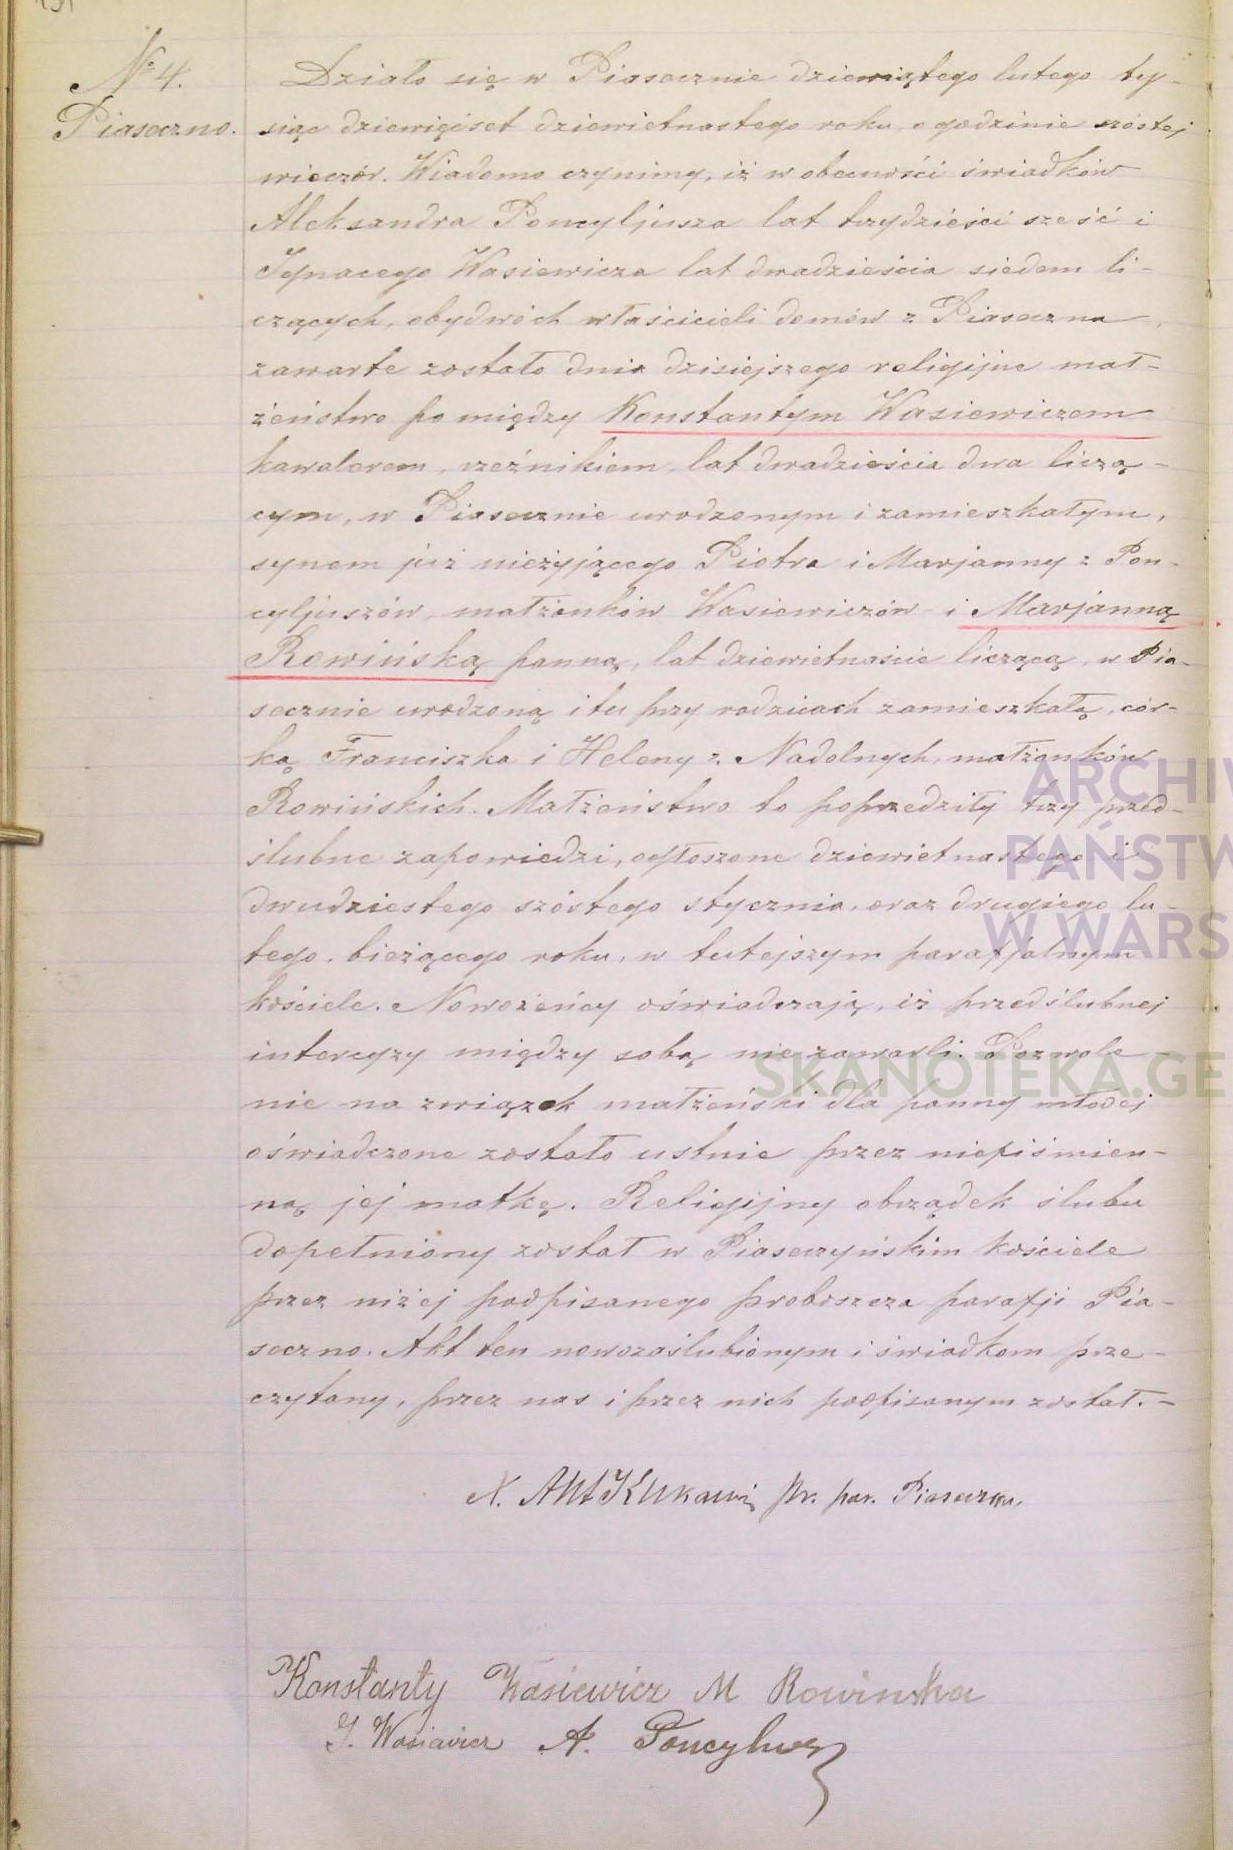 № 4.
Piaseczno.
Działo się w Piasecznie dziewiątego lutego ty-
siąc dziewięćset dziewietnastego roku, o godzinie szóstej
wieczór. Wiadomo czynimy, iż w obecności świadków
Aleksandra Poncyljusza lat trzydzieści sześć i
Ignacego Wasiewicza lat dwadzieścia siedem li-
czących, obydwóch właścicieli domów z Piaseczna,
zawarte zostało dnia dzisiejszego religijne mał-
żeństwo pomiędzy Konstantym Wasiewiczem
kawalerem, rzeźnikiem, lat dwadzieścia dwa liczą-
cym, w Piasecznie urodzonym i zamieszkałym,
synem już nieżyjącego Piotra i Marjanny z Pon-
cyljuszów, małżonków Wasiewiczów - i Marjanną
Rowińską panną, lat dziewietnaście liczącą, w Pia-
secznie urodzoną i tu przy rodzicach zamieszkałą, cór-
ką Franciszka i Heleny z Nadolnych, małżonków
Rowińskich. Małżeństwo to poprzedziły trzy przed-
ślubne zapowiedzi, ogłoszone dziewietnastego i
dwudziestego szóstego stycznia, oraz drugiego lu-
tego, bieżącego roku, w tutejszym parafjalnym
kościele. Nowożeńcy oświadczają, iż przedślubnej
intercyzy między sobą nie zawarli. Pozwole-
nie na związek małżeński dla panny młodej
oświadczone zostało ustnie przez niepiśmien-
ną jej matkę. Religijny obrządek ślubu
dopełniony został w Piaseczyńskim kościele
przez niżej podpisanego proboszcza parafji Pia-
seczno. Akt ten nowozaślubionym i świadkom prze-
czytany, przez nas i przez nich podpisanym został.-
X. Ant Kukawi pr. par. Piaseczna,
Konstanty Wasiewicz M Rowinska
I. Wasiawicz A. Poncylusz
ARCHIW
PAŃSTW
W WARS
SKANOTEKA.GE